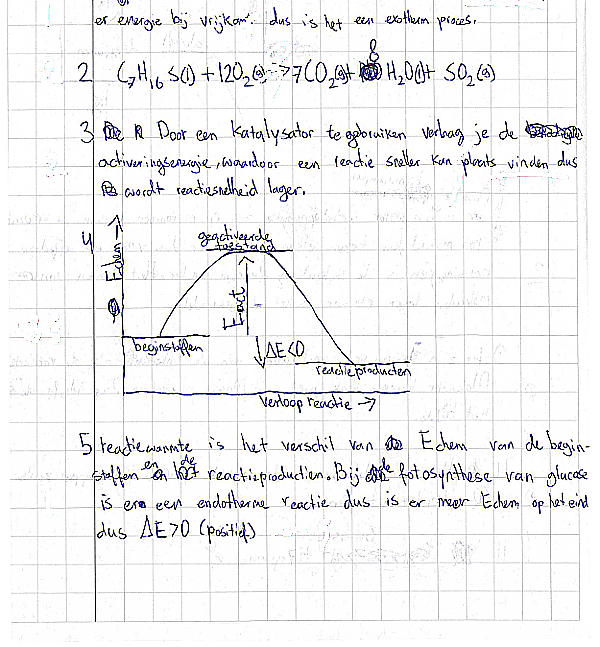 er energie bij vrijkomt. dus is het een exotherm proces.
2 C7H16S(l) + 12O2(g) -> 7CO2(g) + 8 H2O(l) + SO2(g)
3 Door een katalysator te gebruiken verlaag je de
activeringsenergie, waardoor een reactie sneller kan plaats vinden dus
wordt reactiesnelheid lager.
4
Echem →
geactiveerde
toestand
Eact
beginstoffen
ΔE<0
reactieproducten
verloop reactie →
5 reactiewarmte is het verschil van Echem van de begin-
stoffen en de reactieproducten. Bij de fotosynthese van glucose
is er een endotherme reactie dus is er meer Echem op het eind
dus ΔE>0 (positief)